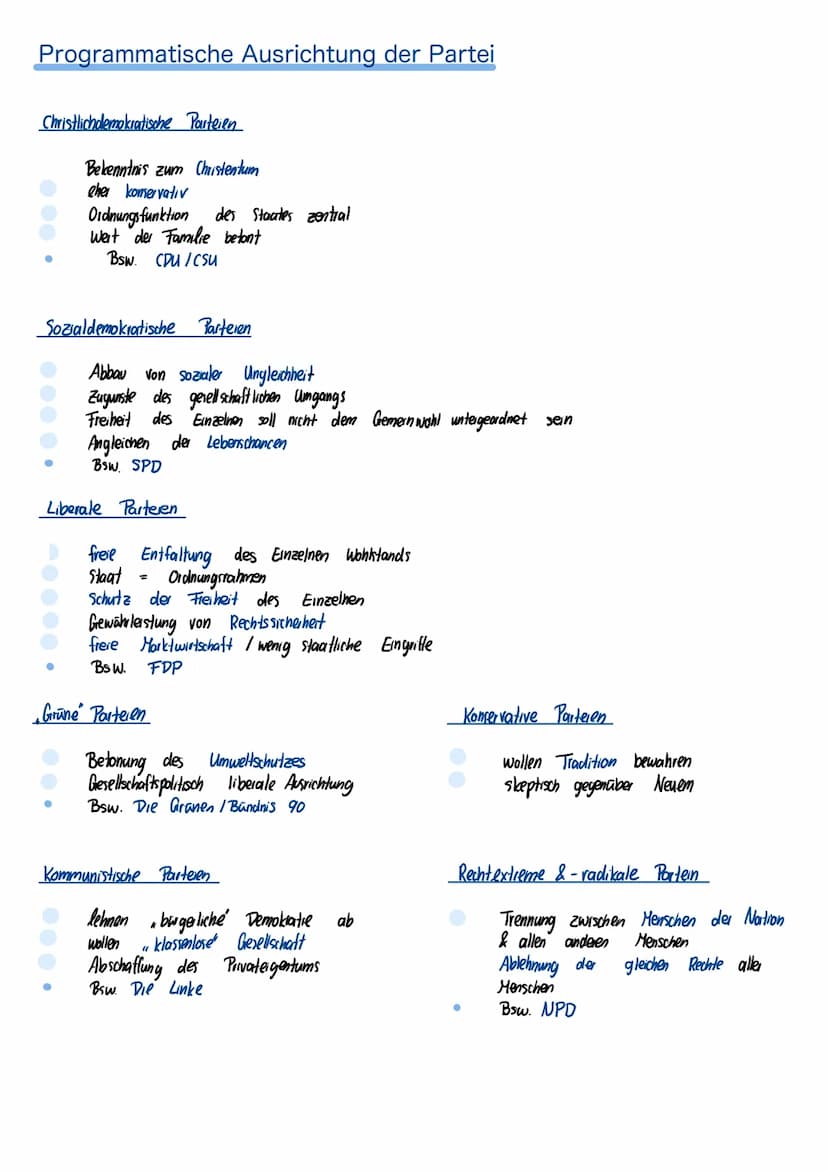 Programmatische Ausrichtung der Partei
Christlichdemokratische Parteien
Bekenntnis zum Christentum
eher konservativ
Ordnungsfunktion des Staates zentral
Wert der Familie betont
Bsw. CDU / CSU
Sozialdemokratische Parteien
Abbau von sozialer Ungleichheit
Zugunste des gesellschaftlichen Umgangs
Freiheit des Einzelnen soll nicht dem Gemeinwohl untergeordnet sein
Angleichen der Lebenschancen
Bsw. SPD
Liberale Parteien
freie Entfaltung des Einzelnen Wohlstands
Staat = Ordnungsrahmen
Schutz der Freiheit des Einzelnen
Gewährleistung von Rechtssicherheit
freie Marktwirtschaft / wenig staatliche Eingriffe
Bsw. FDP
„Grüne" Parteien
Betonung des Umweltschutzes
Gesellschaftspolitisch liberale Ausrichtung
Bsw. Die Grünen / Bündnis 90
Konservative Parteien
wollen Tradition bewahren
skeptisch gegenüber Neuem
Kommunistische Parteien
lehnen „bürgerliche" Demokratie ab
wollen „klassenlose" Gesellschaft
Abschaffung des Privateigentums
Bsw. Die Linke
Rechtextreme & -radikale Partein
Trennung zwischen Menschen der Nation
& allen anderen Menschen
Ablehnung der gleichen Rechte aller
Menschen
Bsw. NPD